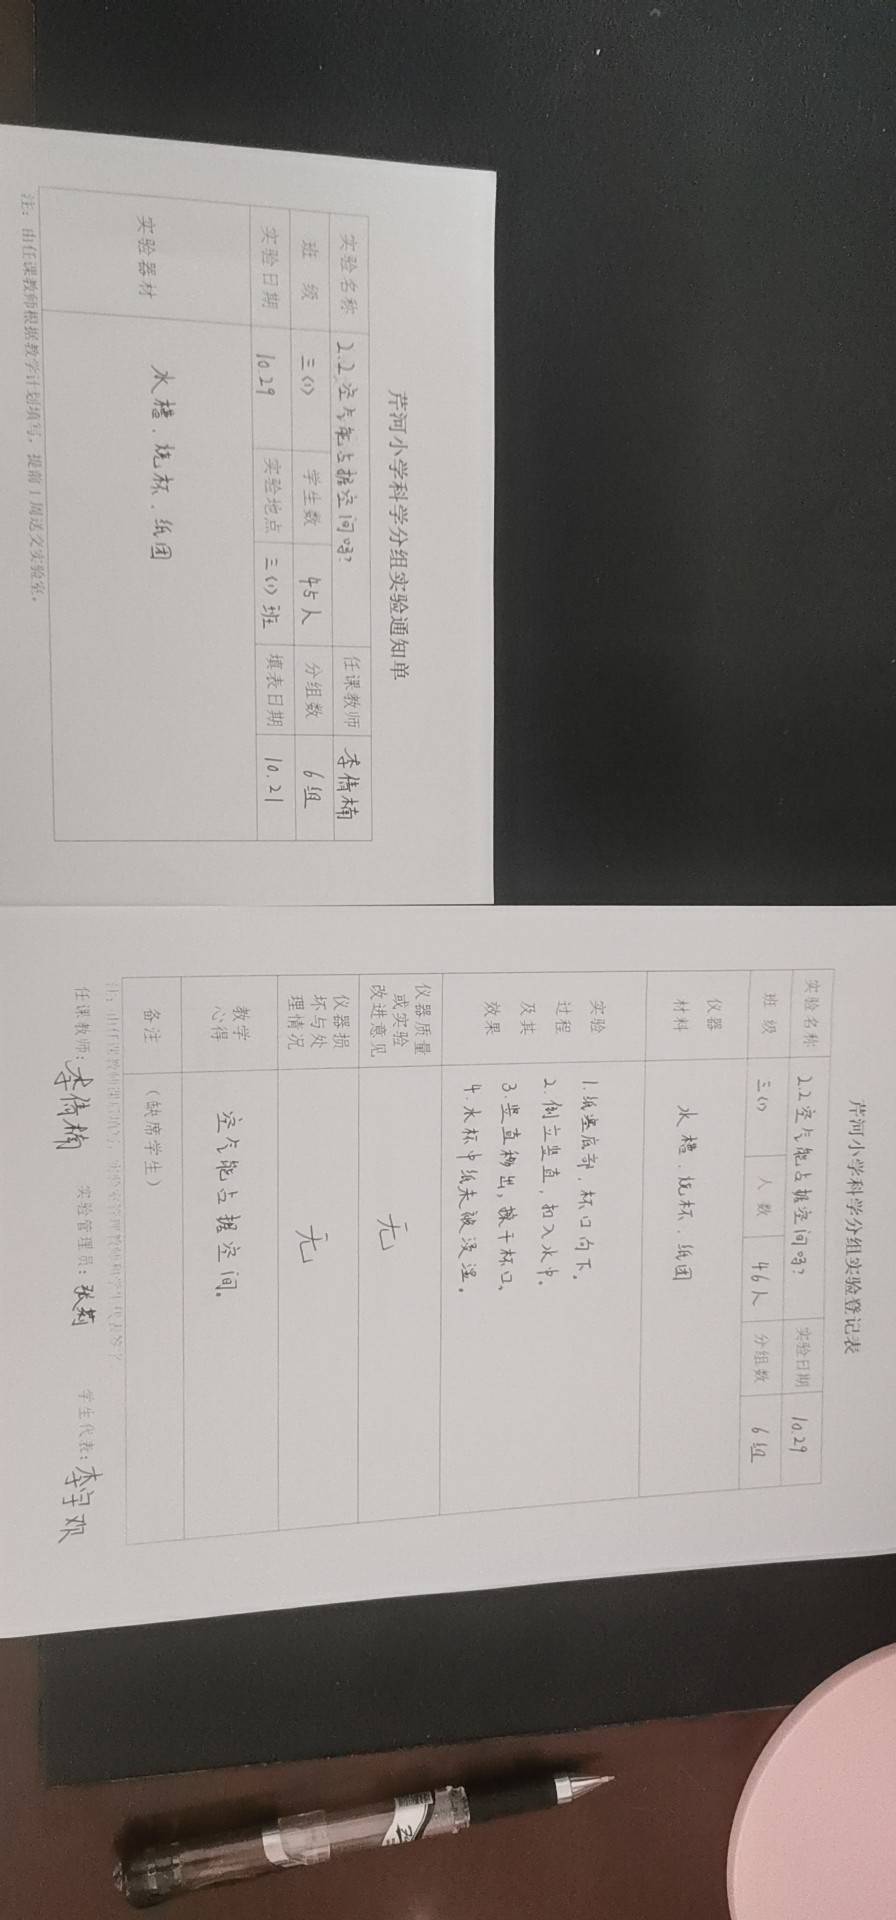 芹河小学科学分组实验通知单
实验名称 2.2空气能占据空间吗? 任课教师 李倩楠
班 级 三(1) 学生数 45人 分组数 6组
实验日期 10.29 实验地点 三(1)班 填表日期 10.21
实验器材 水槽、烧杯、纸团
注:由任课教师根据教学计划填写,提前1周送交实验室。
芹河小学科学分组实验登记表
实验名称 2.2空气能占据空间吗? 实验日期 10.29
班 级 三(1) 人 数 46人 分组数 6组
仪器
材料
水槽、烧杯、纸团
实验
过程
及其
效果
1.纸底部,杯口向下。
2.倒立竖直,扣入水中。
3.竖直移出,擦干杯口、
4.水杯中纸未被浸湿。
仪器质量
或实验
改进意见
无
仪器损
坏与处
理情况
无
教学
心得
空气能占据空间。
备注 (缺席学生)
注:由任课教师课后填写,实验室管理教师和学生代表签字
任课教师:李倩楠 实验管理员:张莉 学生代表:李宇欢